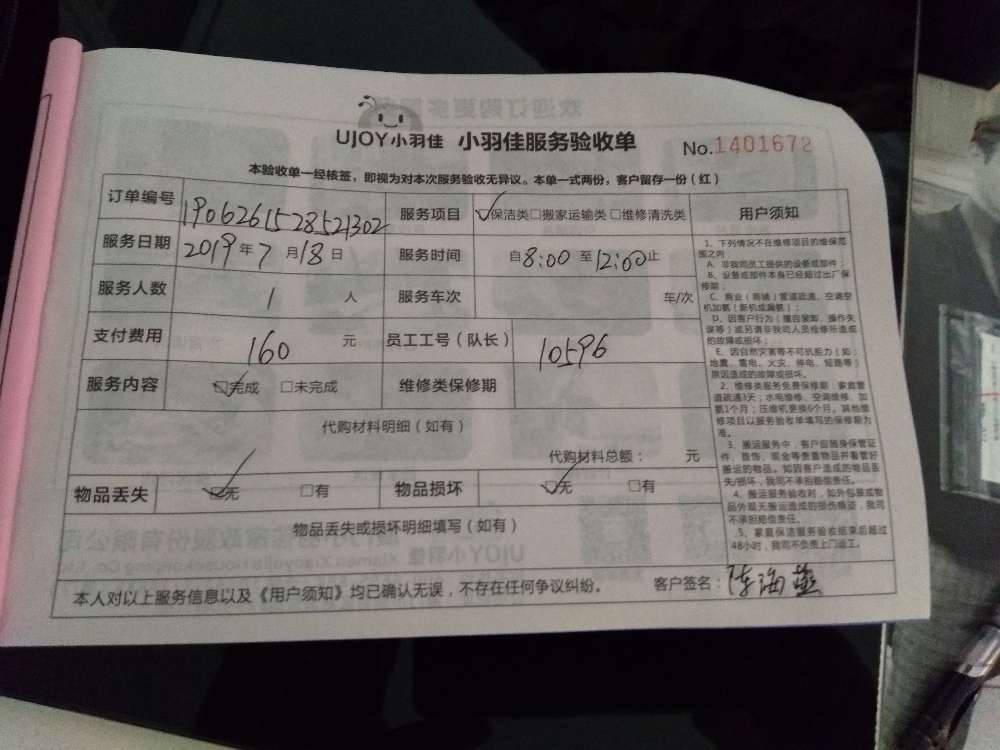 UJOY小羽佳 小羽佳服务验收单 No.1401672
本验收单一经核签，即视为对本次服务验收无异议。本单一式两份，客户留存一份（红）
订单编号 190626152852​1302 服务项目 ☑保洁类□搬家运输类□维修清洗类
服务日期 2019年7月18日 服务时间 自8:00至12:00止
服务人数 1 人 服务车次 车/次
支付费用 160 元 员工工号（队长） 10596
服务内容 ☑完成 □未完成 维修类保修期
代购材料明细（如有）
代购材料总额： 元
物品丢失 ☑无 □有 物品损坏 ☑无 □有
物品丢失或损坏明细填写（如有）
本人对以上服务信息以及《用户须知》均已确认无误，不存在任何争议纠纷。 客户签名：陈海燕
用户须知
1、下列情况不在维修项目的维保范
围之内
A、非我司员工提供的设备或部件；
B、设备或部件本身已经超过出厂保
修期；
C、商业（商铺）管道疏通、空调空
机加氨（新机或漏氨）；
D、因客户行为（擅自装卸、操作失
误等）或另请非我司人员维修所造成
的故障或损坏；
E、因自然灾害等不可抗能力（如：
地震、雷电、火灾、停电、短路等）
原因造成的故障或损坏。
2、维修类服务免费保修期：家庭管
道疏通3天；水电维修、空调维修、加
氨1个月；压缩机更换6个月。其他维
修项目以服务验收单填写的保修期为
准。
3、搬运服务中，客户应随身保管证
件、首饰、现金等贵重物品并看管好
搬运的物品。如因客户造成的物品丢
失/损坏，我司不承担赔偿责任。
4、搬运服务验收时，如外包装或物
品外观无搬运造成的损伤痕迹，我司
不承担赔偿责任。
5、家庭保洁服务验收结束后超过
48小时，我司不负责上门返工。